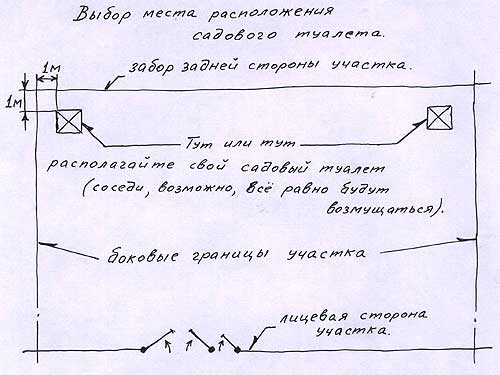 Выбор места расположения
садового туалета.
забор задней стороны участка.
1м
1м
Тут или тут
располагайте свой садовый туалет
(соседи, возможно, всё равно будут
возмущаться).
боковые границы участка
лицевая сторона
участка.